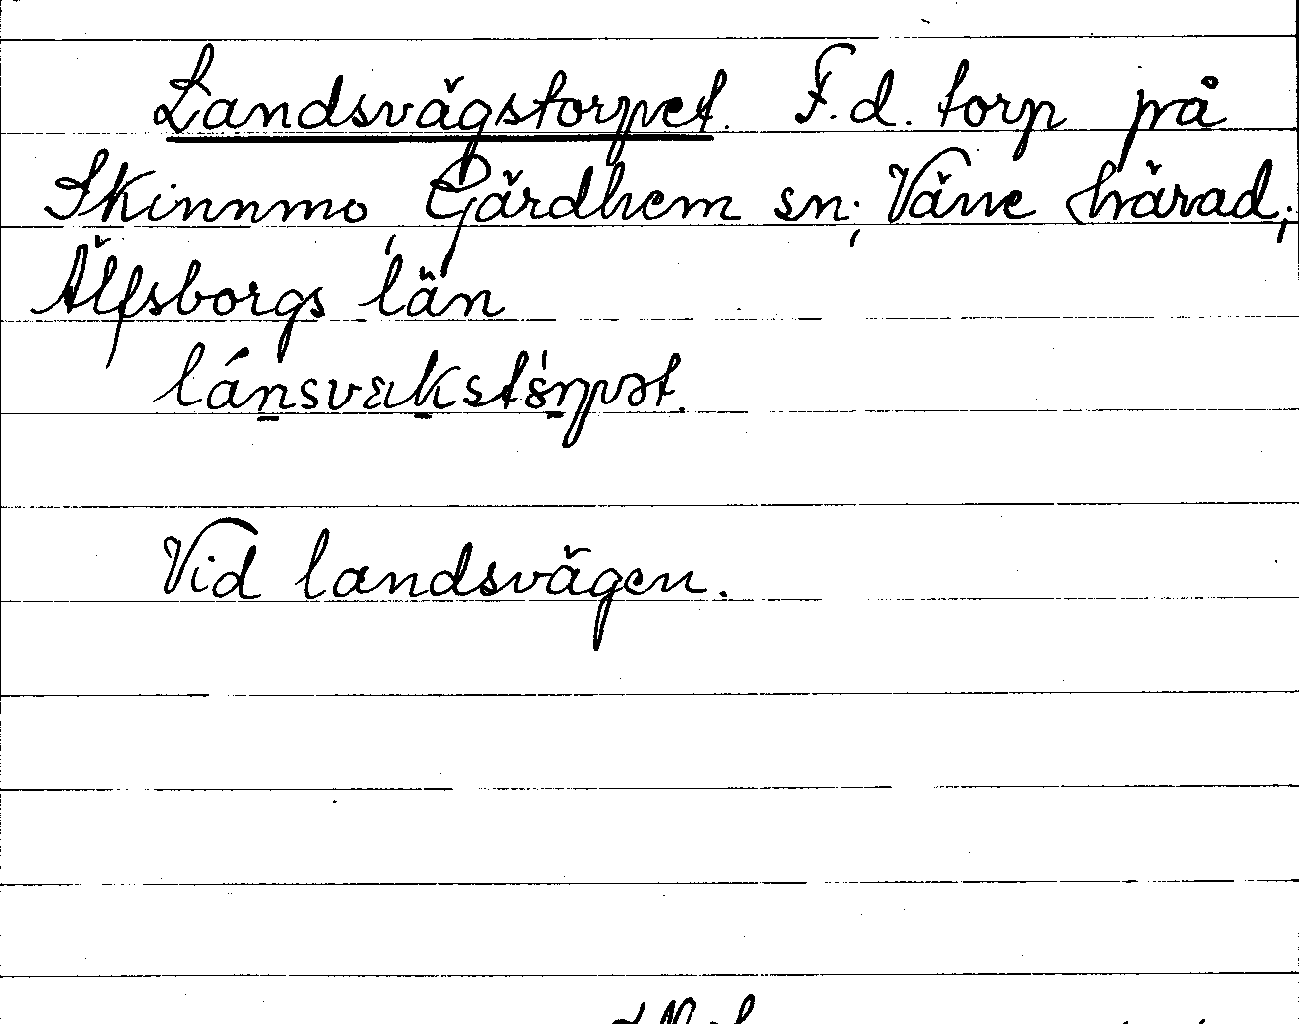 Landsvägstorpet. F.d. torp på
Skinnmo, Gärdhem sn; Väne härad;
Älfsborgs län
Vid landsvägen.